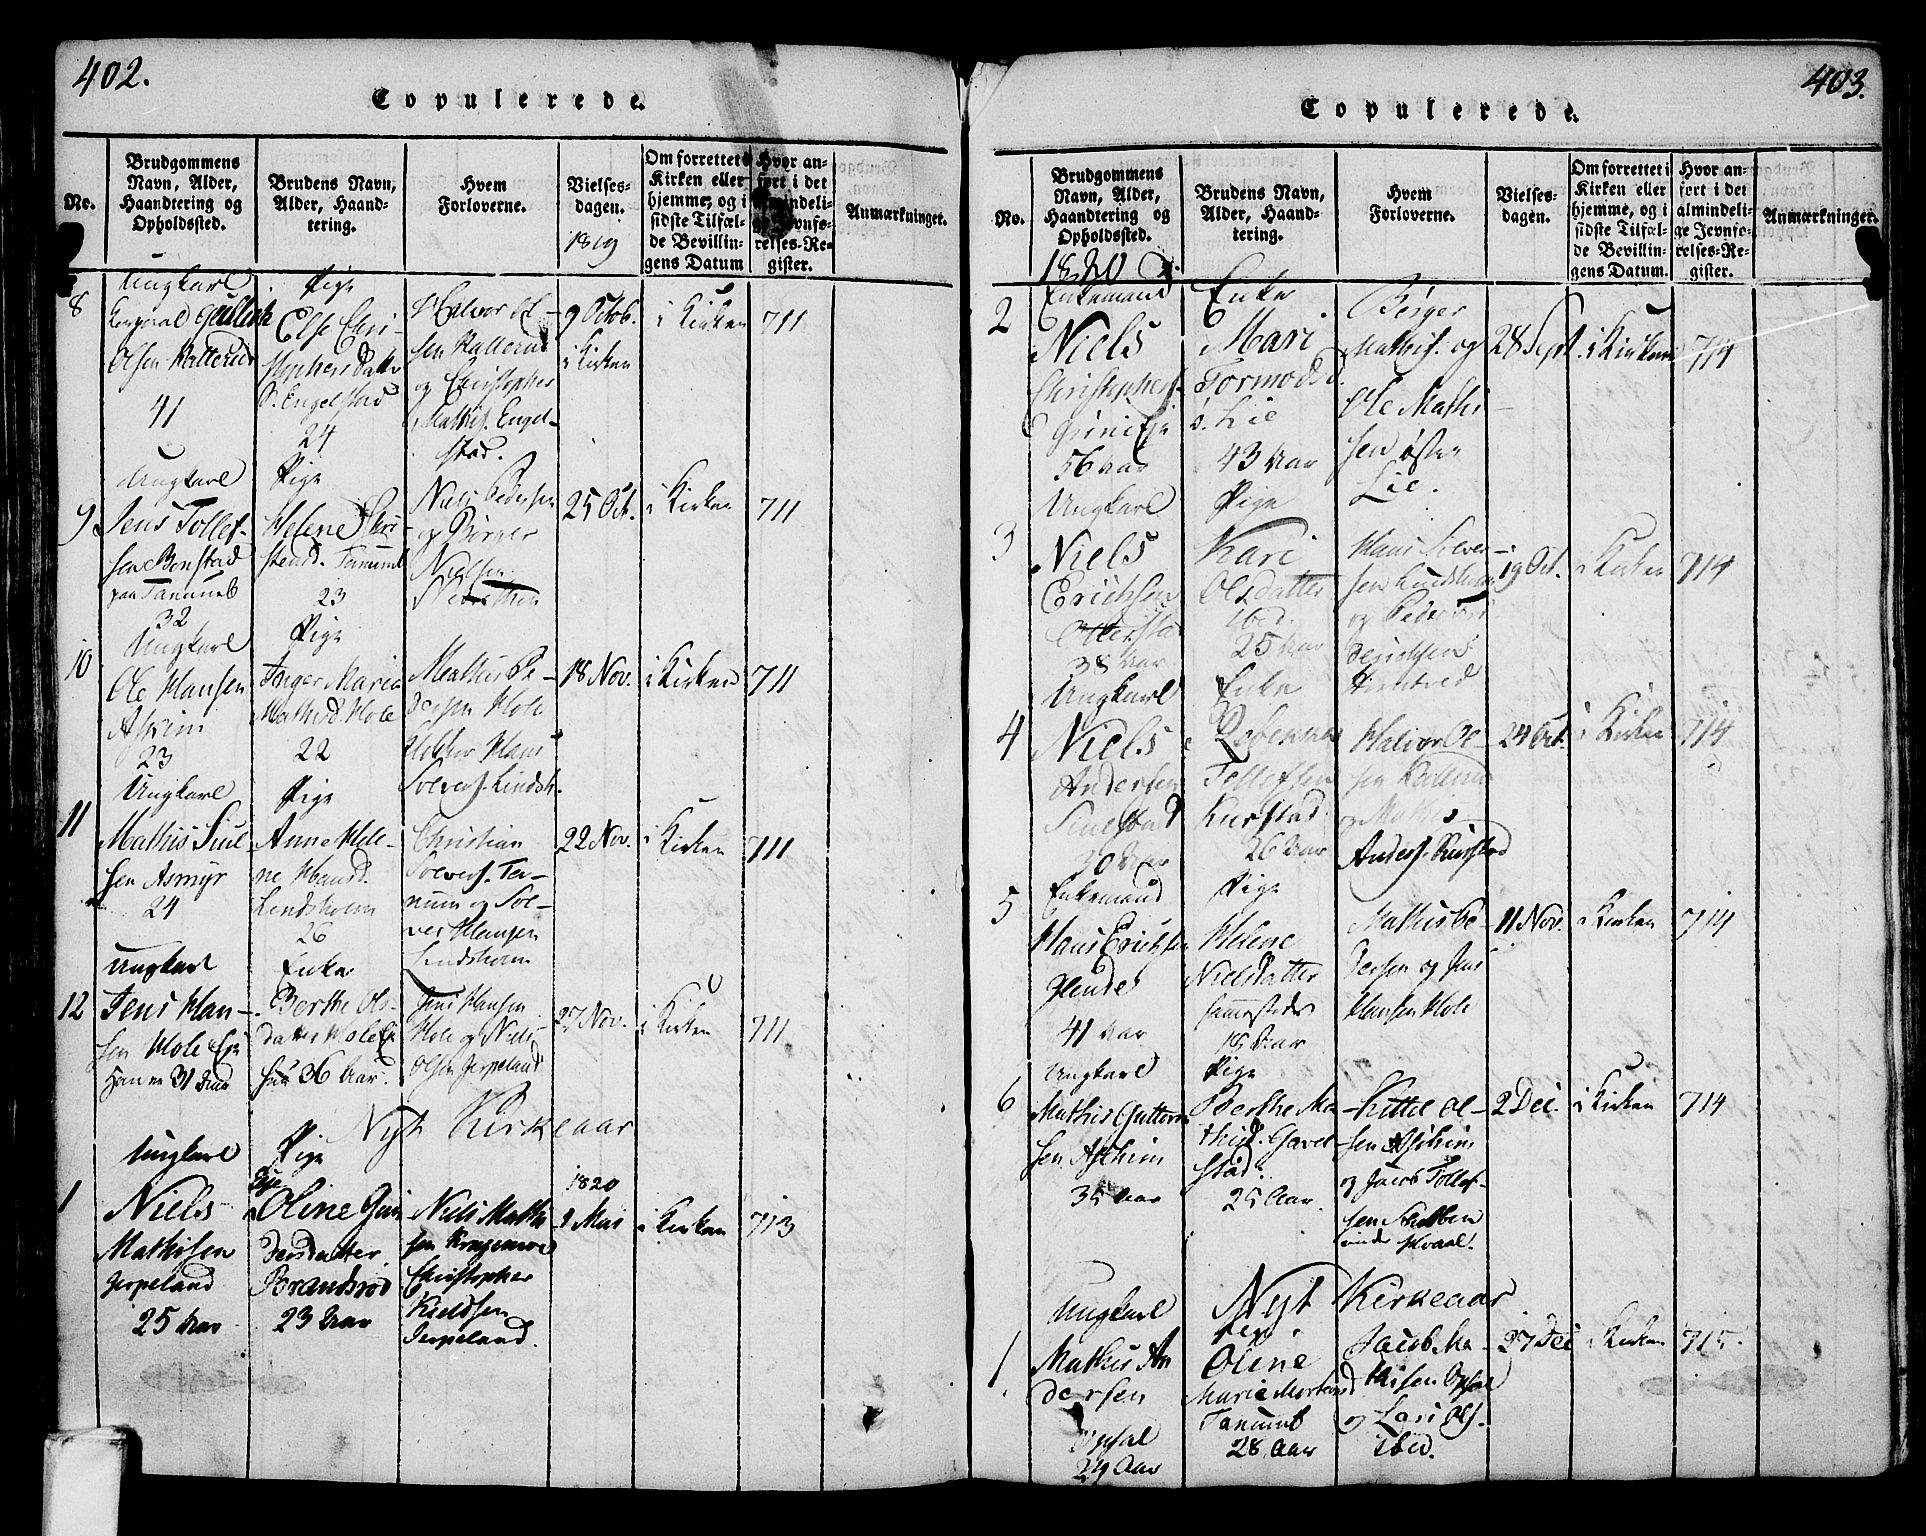 402.
Copulerede.
No.
Brudgommens
Navn, Alder,
Haandtering og
Opholdssted.
Brudens Navn,
Alder, Haand-
tering.
Hvem
Forloverne.
Vielses-
dagen.
1819
Om forrettet i
Kirken eller
hjemme, og i
sidste Tilfæl-
de Bevillin-
gens Datum
Hvor an-
ført i det
almindeli-
ge Jevnfø-
relses-Re-
gister.
Anmærkninger.
8
Ungkarl
Corporal
Olsen
41
Pige
Else Chri-
Engelstad
24
Halvor Ol-
sen
og Christopher
Mathis. Engel-
stad.
9 Octob.
i Kirken
i Kirken
711
9
Ungkarl
Jens Tollef-
sen Bonstad
paa Tanum
32
Pige
Helene Chri-
stensd. Tanum
23
Niels Pedersen
og Börger
Nielsen
25 Oct.
i Kirken
711
10
Ungkarl
Ole Hansen
Askim
23
Pige
Inger Maria
Mathisd. Hole
22
Mathis Pe-
dersen Hole
Hans
Solvers. Lindsh.
18 Nov.
i Kirken
711
11
Ungkarl
Mathis
sen Asmyr
24
Pige
Anne Hele-
ne Hansd.
Lindsholm
26
Christian
Solvers. Ta-
num og Sol-
ver Hansen
Lindsholm
22 Nov.
i Kirken
711
12
Ungkarl
Jens Han-
sen Hole Eje
Han er 31 Aar
Enke
Berthe Ols-
datter Hole Eje
hun 36 Aar.
Jens Hansen
Hole og Niels
Olsen Jerpeland
27 Nov.
i Kirken
711
Nyt Kirkeaar
1
Ungkarl
Niels
Mathisen
Jerpeland
25 Aar
Pige
Oline Gun-
dersdatter
Brandsrød
23 Aar
Niels Mathi-
sen
Christopher
Kieldsen
Jerpeland.
1820
1 Mai
i Kirken
713
403.
Copulerede.
No.
Brudgommens
Navn, Alder,
Haandtering og
Opholdssted.
1820
Brudens Navn,
Alder, Haand-
tering.
Hvem
Forloverne.
Vielses-
dagen.
Om forrettet i
Kirken eller
hjemme, og i
sidste Tilfæl-
de Bevillin-
gens Datum.
Hvor an-
ført i det
almindeli-
ge Jevnfø-
relses-Re-
gister.
Anmærkninger.
2
Enkemand
Niels
Christophers.
56 Aar
Enke
Mari
Tormodsd.
Lie
43 Aar
Börger
Mathis. og
Ole Mathi-
sen øster
Lie.
28 Sept.
i Kirken
714
3
Ungkarl
Niels
Erichsen
38 Aar
Pige
Kari
Olsdatter
ibid.
25 Aar
Hans Solver-
sen Lindsholm
og Peder
19 Oct.
i Kirken
714
4
Ungkarl
Niels
Andersen
30 Aar
Enke
Tollefsen
Kurstad
26 Aar
Halvor Ol-
sen
og Mathis
Anders. Kurstad
24 Oct.
i Kirken
714
5
Enkemand
Hans Erichsen
41 Aar
Pige
Helene
Nielsdatter
sammesteds
18 Aar
Mathis Pe-
dersen og Jens
Hansen Hole
11 Nov.
i Kirken
714
6
Ungkarl
Mathis Guttorm-
sen Askim
35 Aar
Pige
Berthe Ma-
thisd. Gavel-
stad.
25 Aar.
Kittil Ol-
sen Askim
og Jacob Tollef-
sen
2 Dec.
i Kirken
714
Nyt Kirkeaar
1
Ungkarl
Mathis An-
dersen
Opsal
29 Aar
Pige
Oline
Marie Mortensd
Tanum
28 Aar
Jacob Ma-
thisen Opsal
og Lars Ols.
ibid.
27 Dec
i Kirken
715.